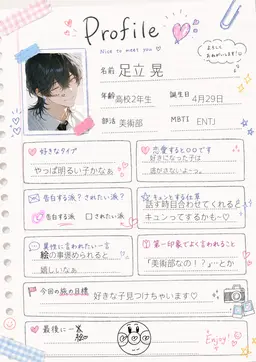 Profile
Nice to meet you
よろしく
おねがいします!
名前 足立 晃
年齢 高校2年生 誕生日 4月29日
部活 美術部 MBTI ENTJ
好きなタイプ
やっぱ明るい子かなぁ
恋愛すると○○です
好きになった子は
逃がさないよーっ。
告白する派？されたい派？
告白する派 されたい派
キュンとする仕草
話す時目合わせてくれると
キュンってするかも~♡
異性に言われたい一言
絵の事褒められると
嬉しいなぁ
第一印象でよく言われること
「美術部なの！？」…とか
今回の旅の目標
好きな子見つけちゃいます♡
最後に一
Enjoy!